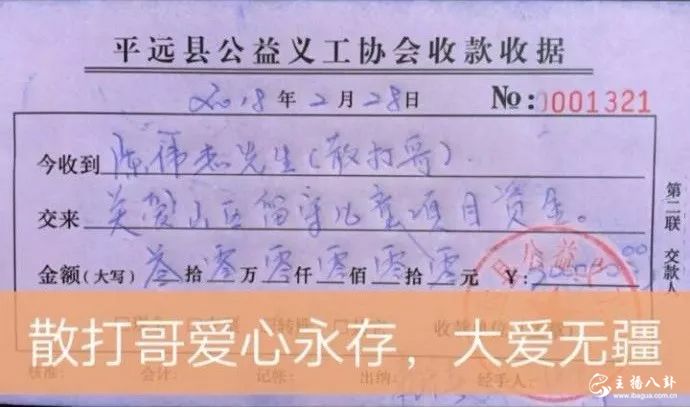 平远县公益义工协会收款收据
2018年2月28日 №:0001321
今收到 陈伟杰先生(散打哥).
交来 关爱山区留守儿童项目资金。
金额(大写) 叁拾零万零仟零佰零拾零元 ¥:
第二联 交款人
散打哥爱心永存，大爱无疆
核准: 会计: 记帐: 出纳: 经手人:
主播八卦
www.ibagua.com.cn